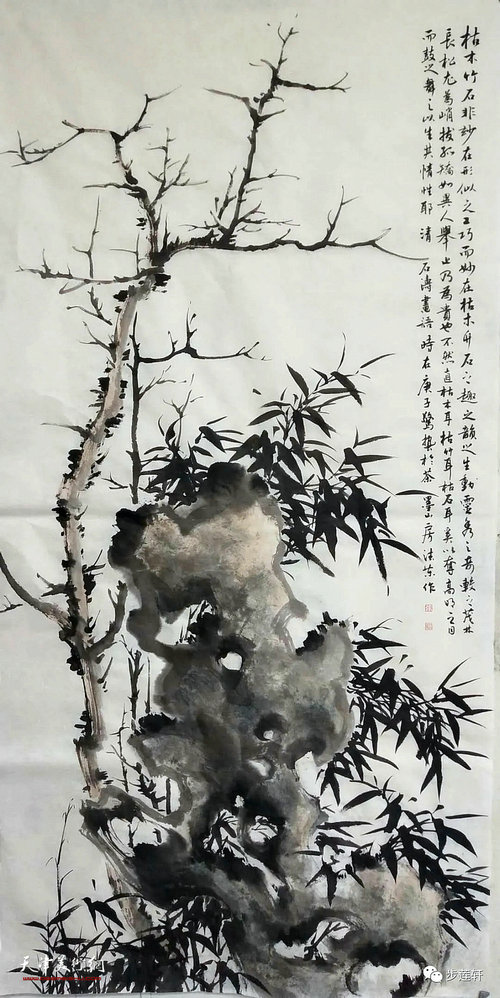 枯木竹石非妙在形似之工巧而妙在枯木竹石之趣之韻之生動靈秀之奇較之茂林
長松尤為峭拔孤矯如異人舉止乃為貴也不然直枯木耳枯竹耳枯石耳奚以奪高明之目
而鼓之舞之以生其情性耶 清 石濤畫語 時在庚子驚蟄於茶墨山房 作
天津美术网
步莲轩